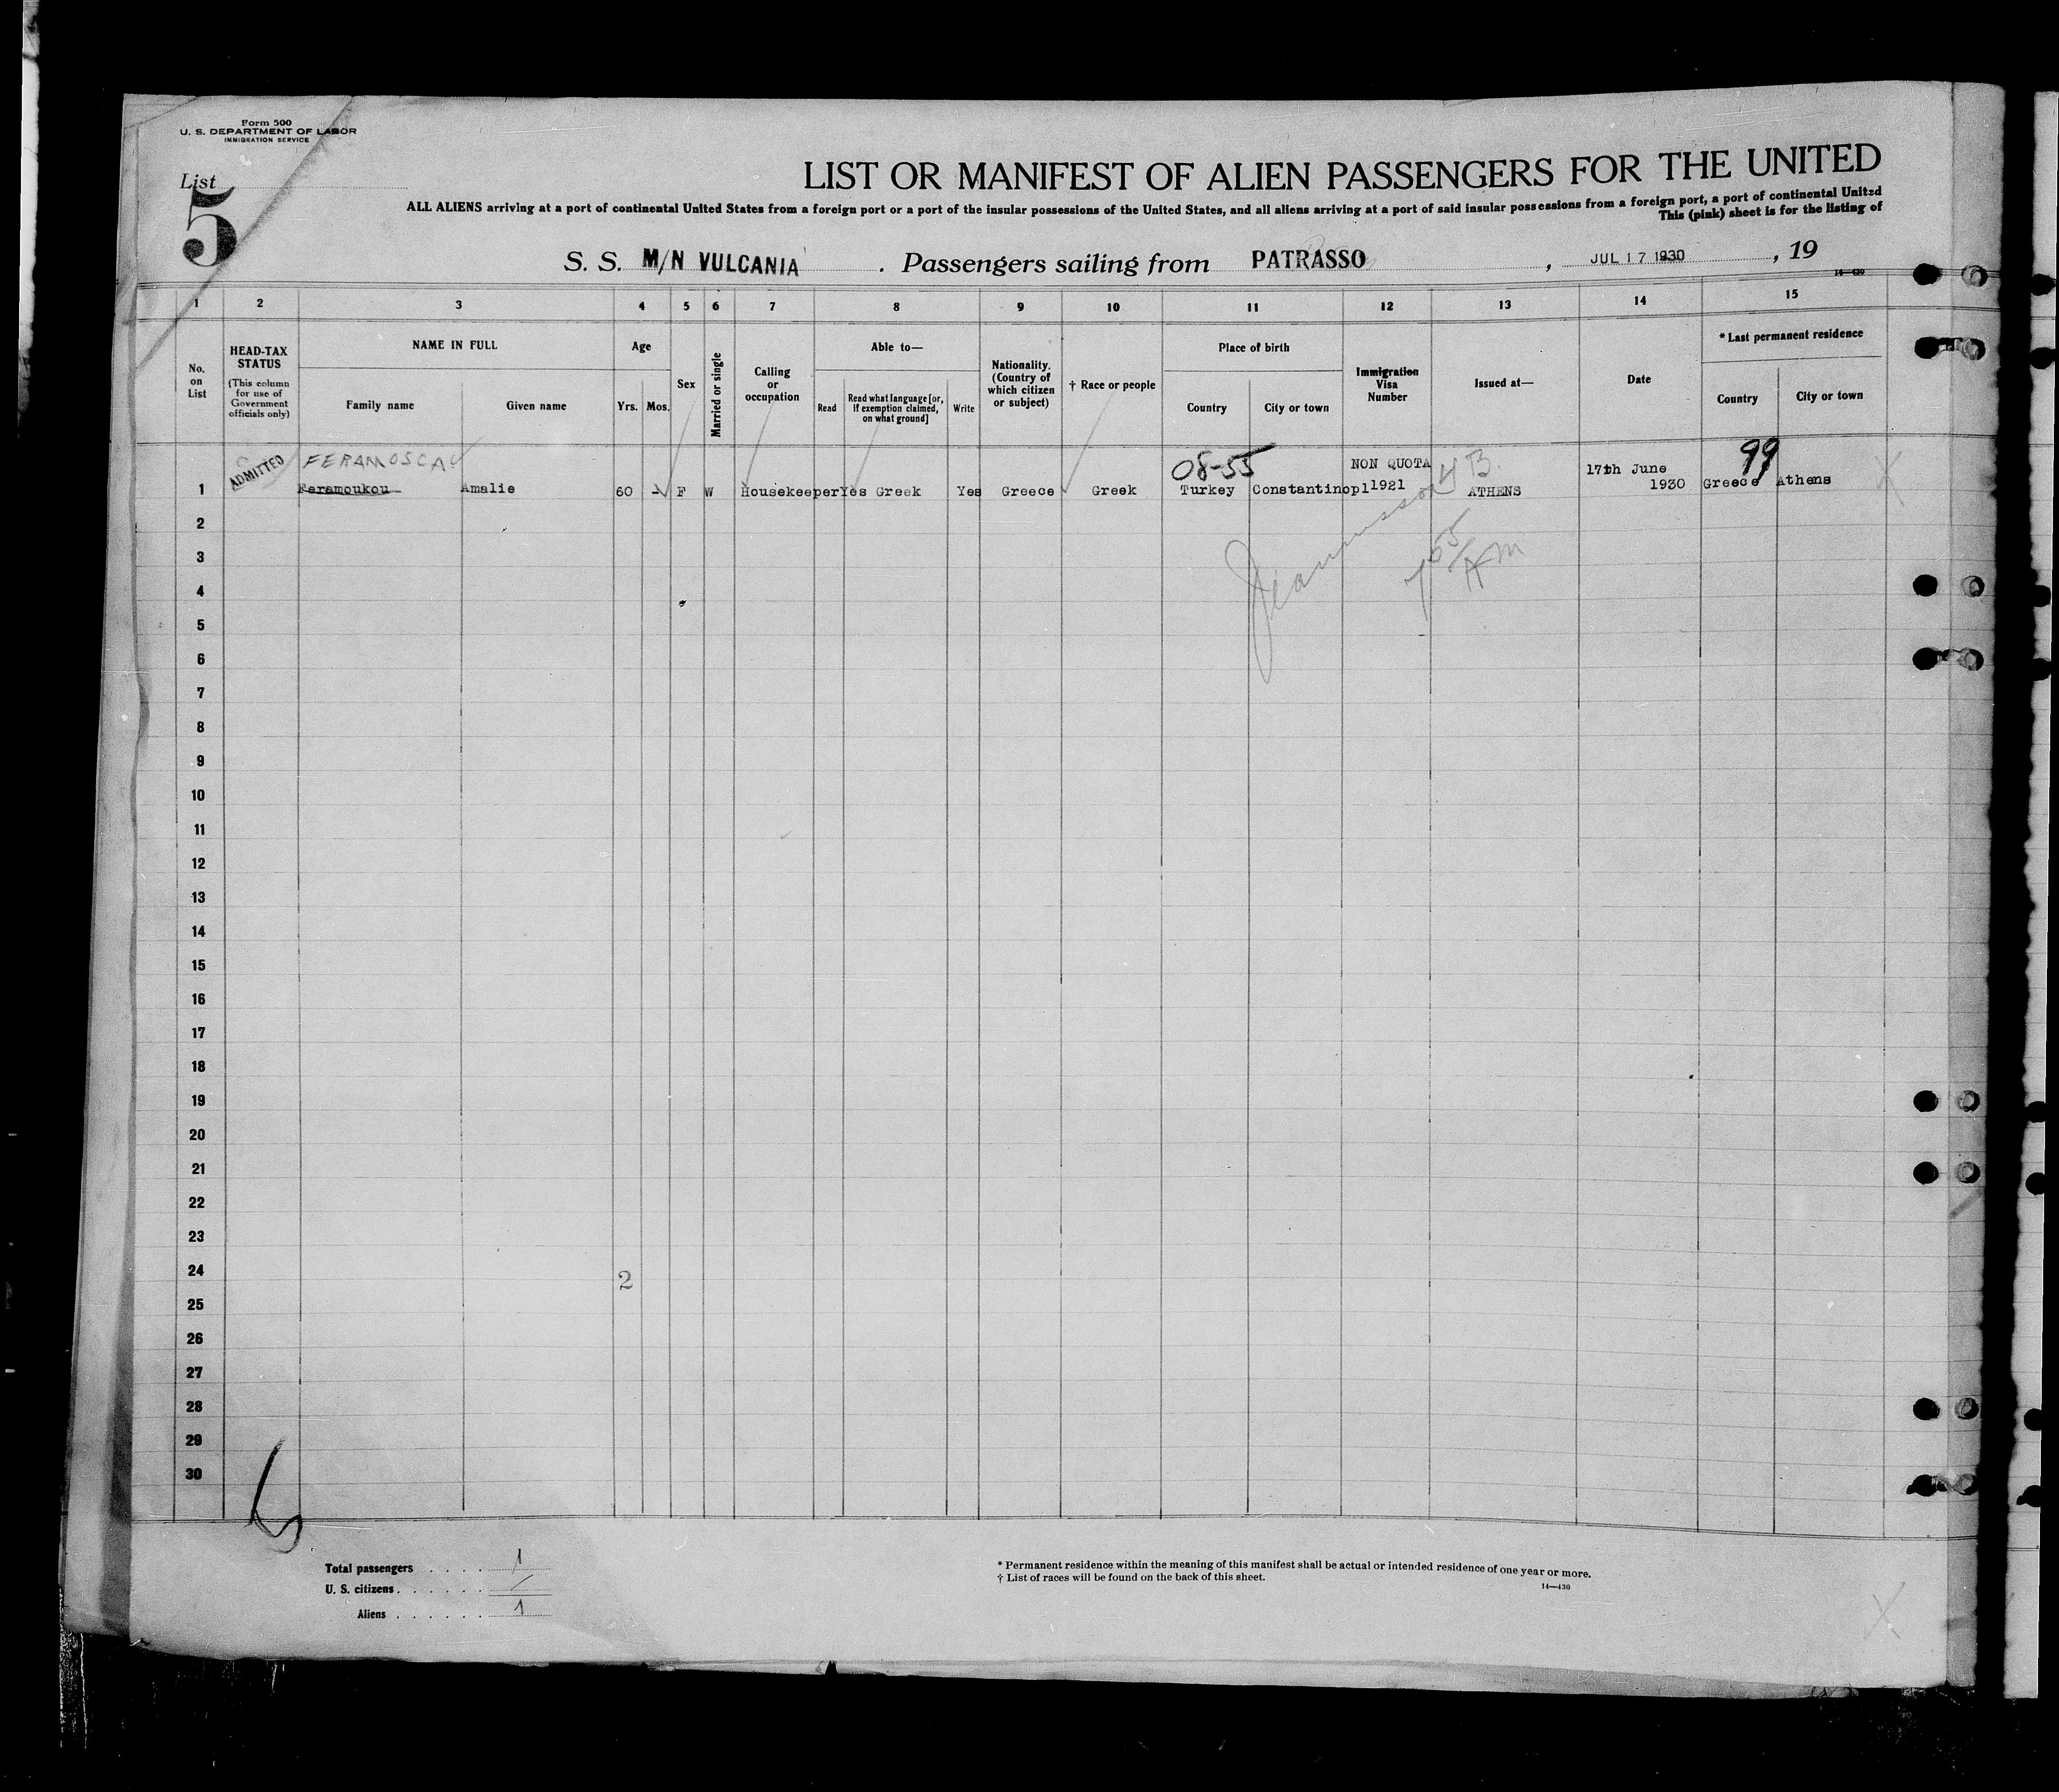 Form 500
U. S. DEPARTMENT OF LABOR
IMMIGRATION SERVICE
List
5
LIST OR MANIFEST OF ALIEN PASSENGERS FOR THE UNITED
ALL ALIENS arriving at a port of continental United States from a foreign port or a port of the insular possessions of the United States, and all aliens arriving at a port of said insular possessions from a foreign port, a port of continental United
This (pink) sheet is for the listing of
S. S. M/N VULCANIA . Passengers sailing from PATRASSO , JUL 17 1930 , 19
14—430
1 2 3 4 5 6 7 8 9 10 11 12 13 14 15
No. on List
HEAD-TAX STATUS
(This column for use of Government officials only)
NAME IN FULL
Family name Given name
Age
Yrs. Mos.
Sex
Married or single
Calling or occupation
Able to—
Read
Read what language [or, if exemption claimed, on what ground]
Write
Nationality. (Country of which citizen or subject)
† Race or people
Place of birth
Country City or town
Immigration Visa Number
Issued at—
Date
* Last permanent residence
Country City or town
ADMITTED FERAMOSCA 08-55 NON QUOTA 17th June 99
1 Feramoukou Amalie 60 F W Housekeeper Yes Greek Yes Greece Greek Turkey Constantinopl 1921 ATHENS 1930 Greece Athens
2
3
4
5
6
7
8
9
10
11
12
13
14
15
16
17
18
19
20
21
22
23
24
2
25
26
27
28
29
30
Total passengers . . . . 1
U. S. citizens . . . . . .
Aliens . . . . . . 1
* Permanent residence within the meaning of this manifest shall be actual or intended residence of one year or more.
† List of races will be found on the back of this sheet.
14—430